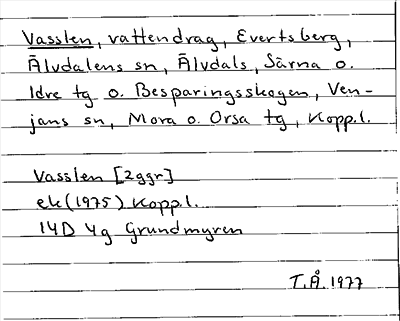 Vasslen, vattendrag, Evertsberg,
Älvdalens sn, Älvdals, Särna o.
Idre tg o. Besparingsskogen, Ven-
jans sn, Mora o. Orsa tg, Kopp.l.
Vasslen [2ggr]
ek(1975) Kopp.l.
14D 4g Grundmyren
T.Å. 1977